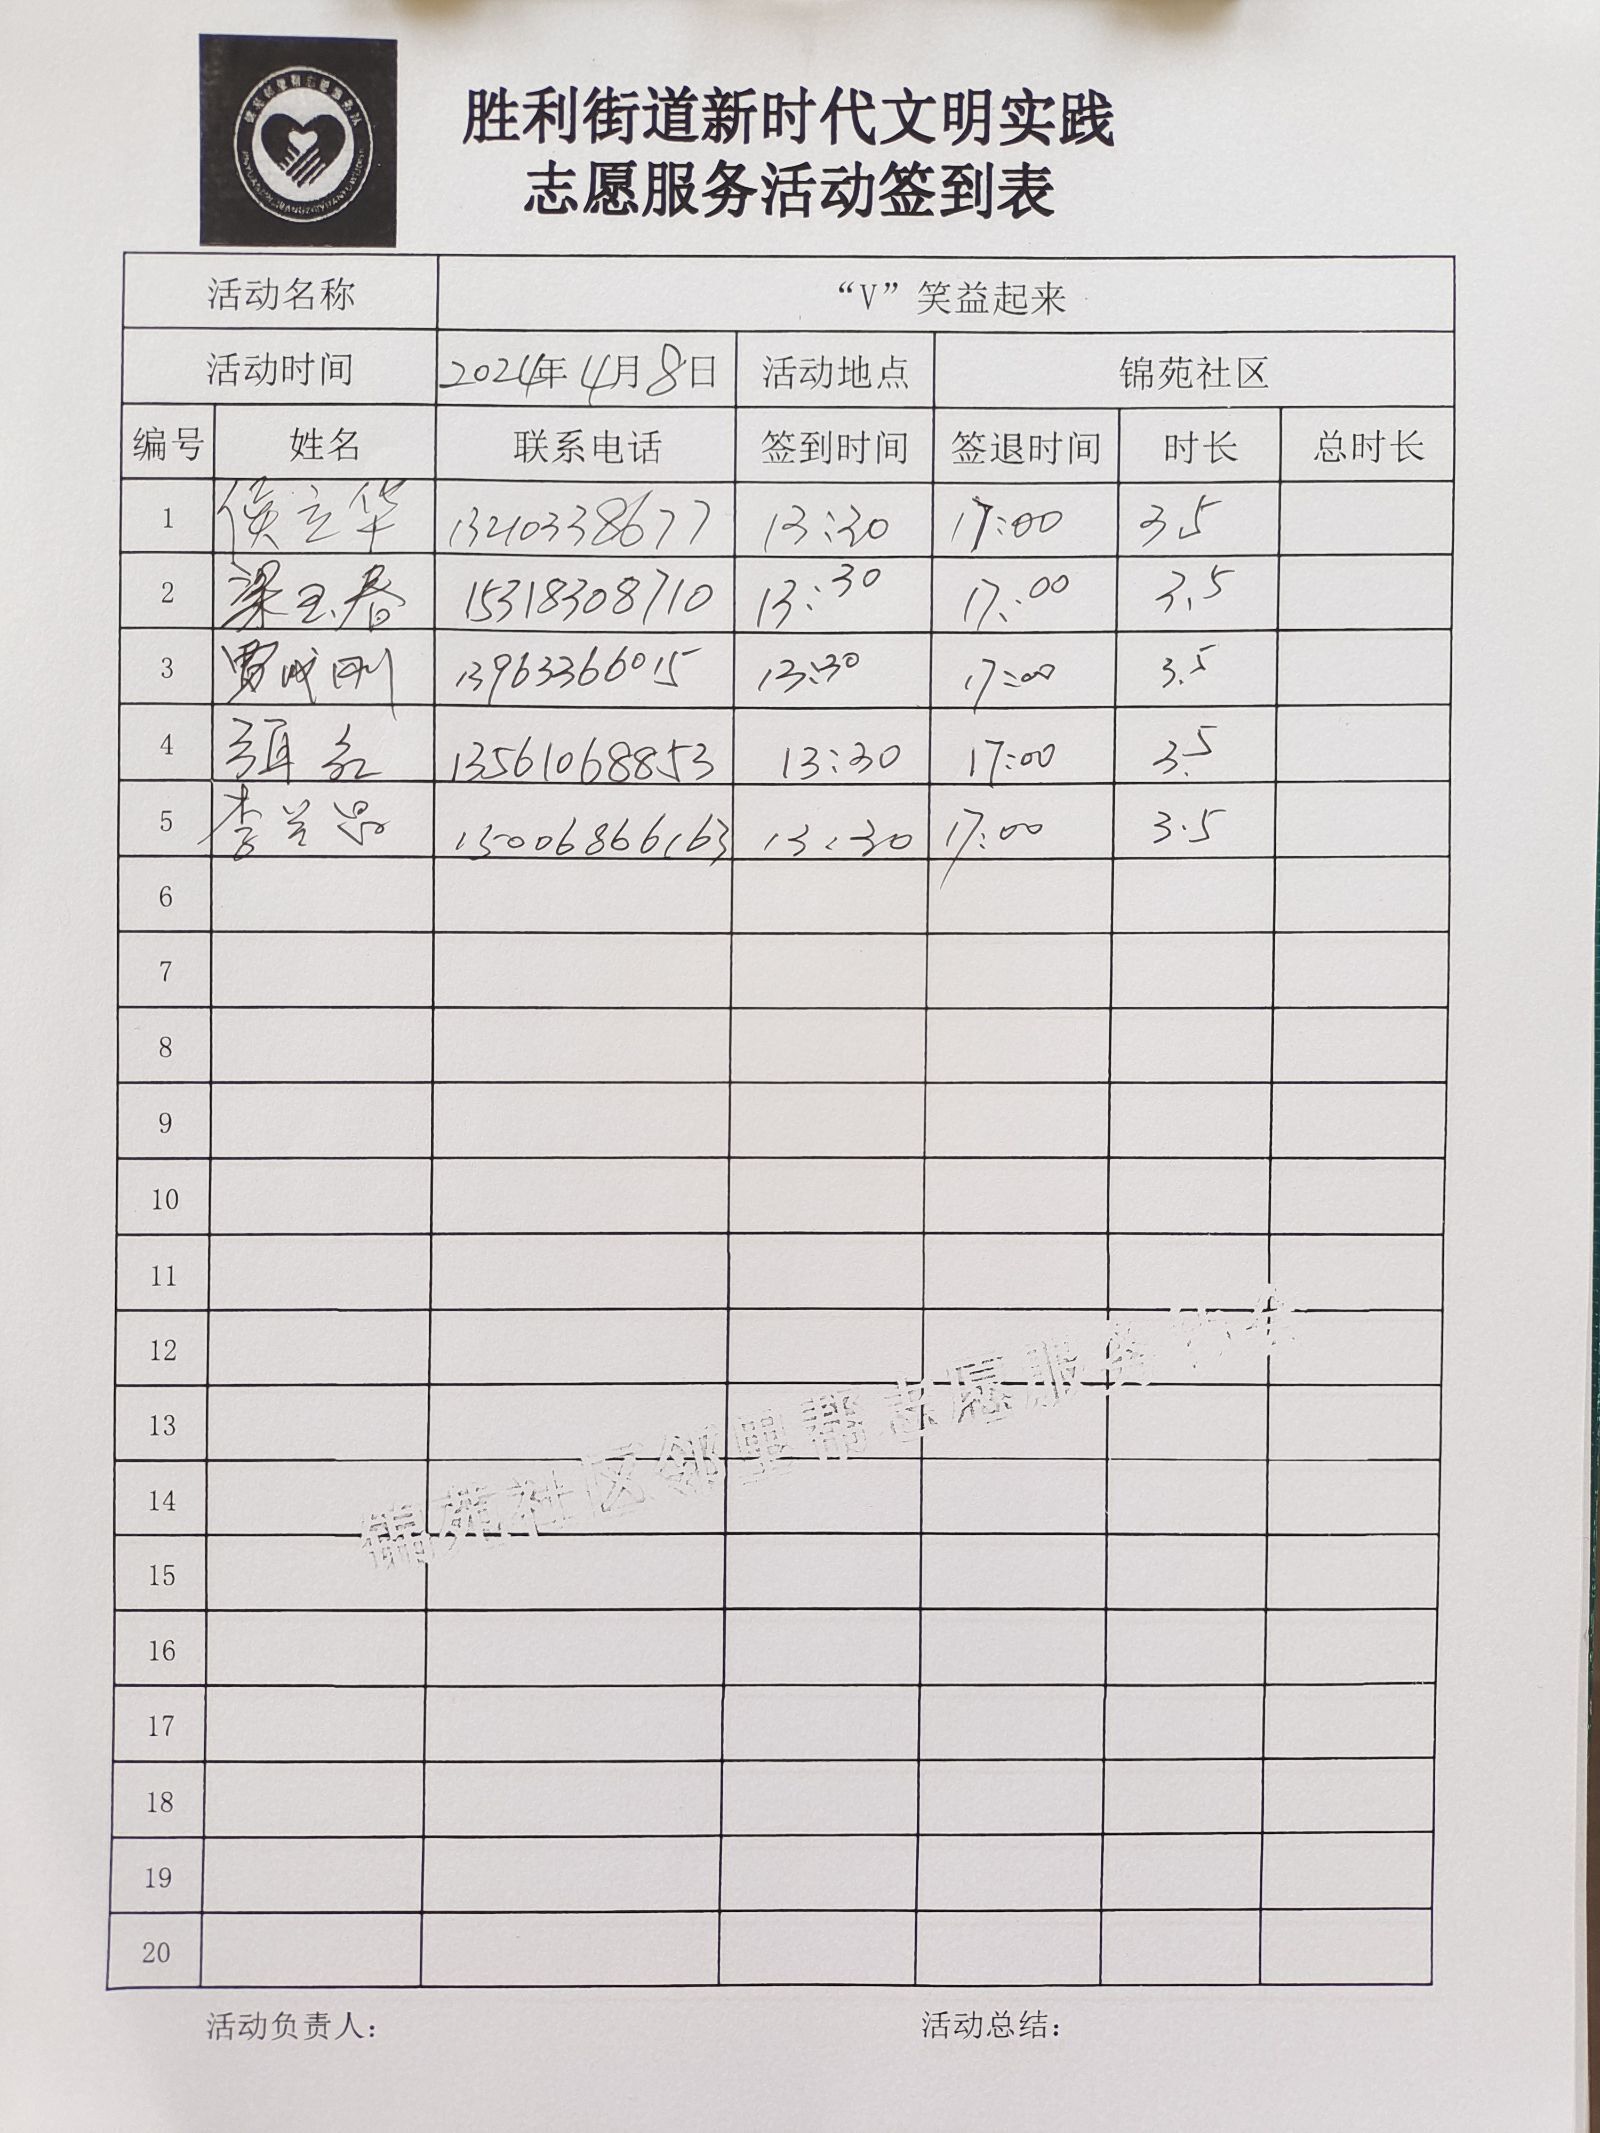 胜利街道新时代文明实践
志愿服务活动签到表
活动名称 “V”笑益起来
活动时间 2024年4月8日 活动地点 锦苑社区
编号 姓名 联系电话 签到时间 签退时间 时长 总时长
1 侯立华 13210338677 13:30 17:00 3.5
2 梁玉春 15318308710 13:30 17:00 3.5
3 贾成刚 13963366015 13:30 17:00 3.5
4 红 13561068853 13:30 17:00 3.5
5 李兰 15006866163 13:30 17:00 3.5
6
7
8
9
10
11
12
13
14
15
16
17
18
19
20
锦苑社区邻里帮志愿服务
活动负责人: 活动总结: